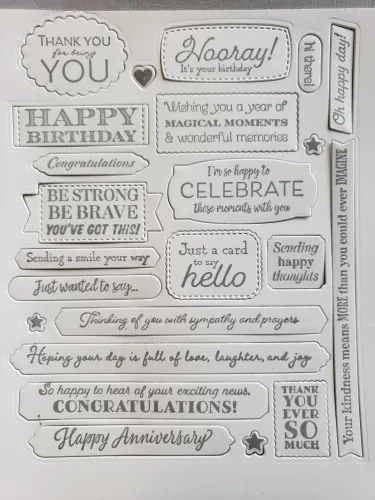 THANK YOU
for being
YOU
Hooray!
It's your birthday
hi there!
Oh happy day!
HAPPY
BIRTHDAY
Wishing you a year of
MAGICAL MOMENTS
& wonderful memories
Congratulations
I'm so happy to
CELEBRATE
these moments with you
BE STRONG
BE BRAVE
YOU'VE GOT THIS!
Just a card
to say
hello
Sending
happy
thoughts
Sending a smile your way
Just wanted to say...
Thinking of you with sympathy and prayers
Hoping your day is full of love, laughter, and joy
So happy to hear of your exciting news.
CONGRATULATIONS!
THANK
YOU
EVER
SO
MUCH
Happy Anniversary
Your kindness means MORE than you could ever IMAGINE